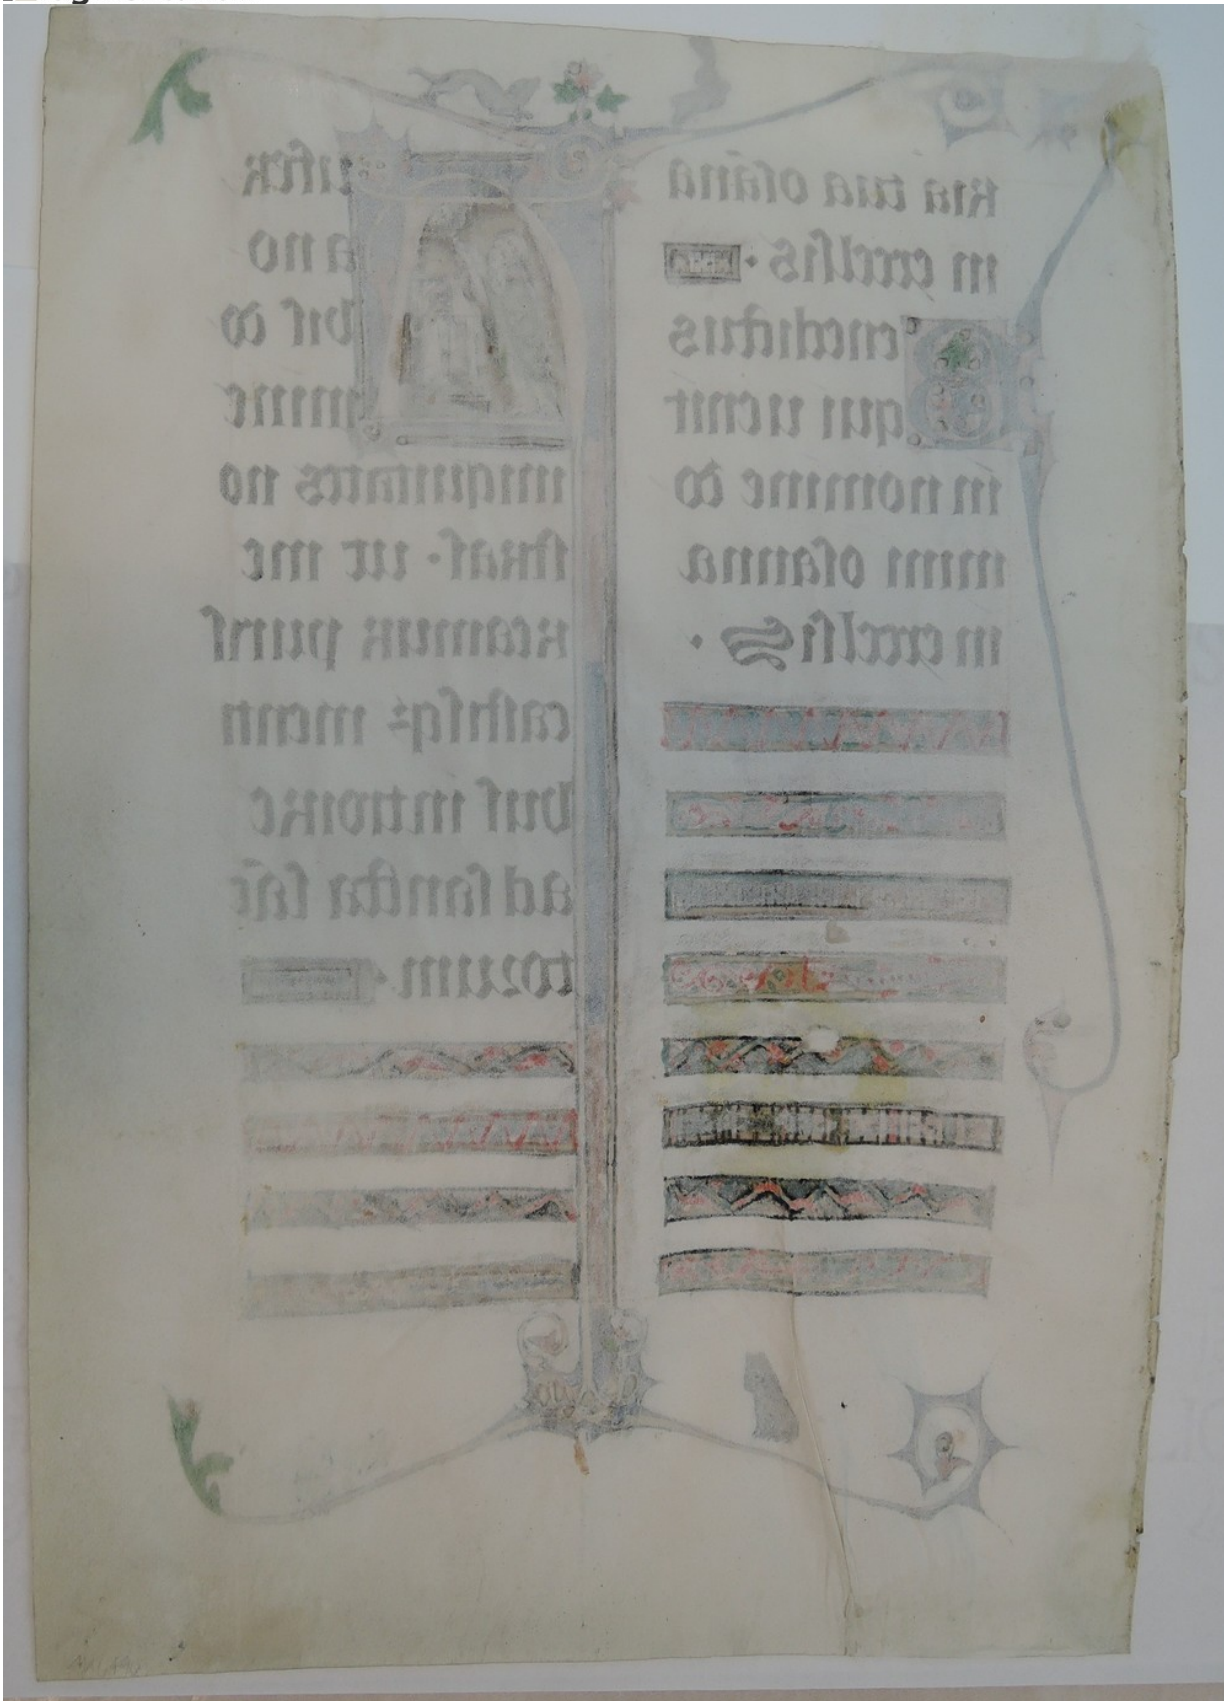 ria tua osāna
in excelsis ·
Benedictus
qui uenit
in nomine do
mini osanna
in excelsis ·
Aufer
a no
bis do
mine
iniquitates no
stras · ut me
reamur puris
castisq; menti
bus introire
ad sancta sāc
torum ·